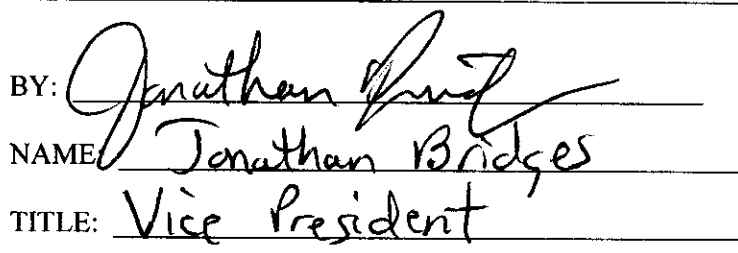 BY: Jonathan
NAME: Jonathan Bridges
TITLE: Vice President